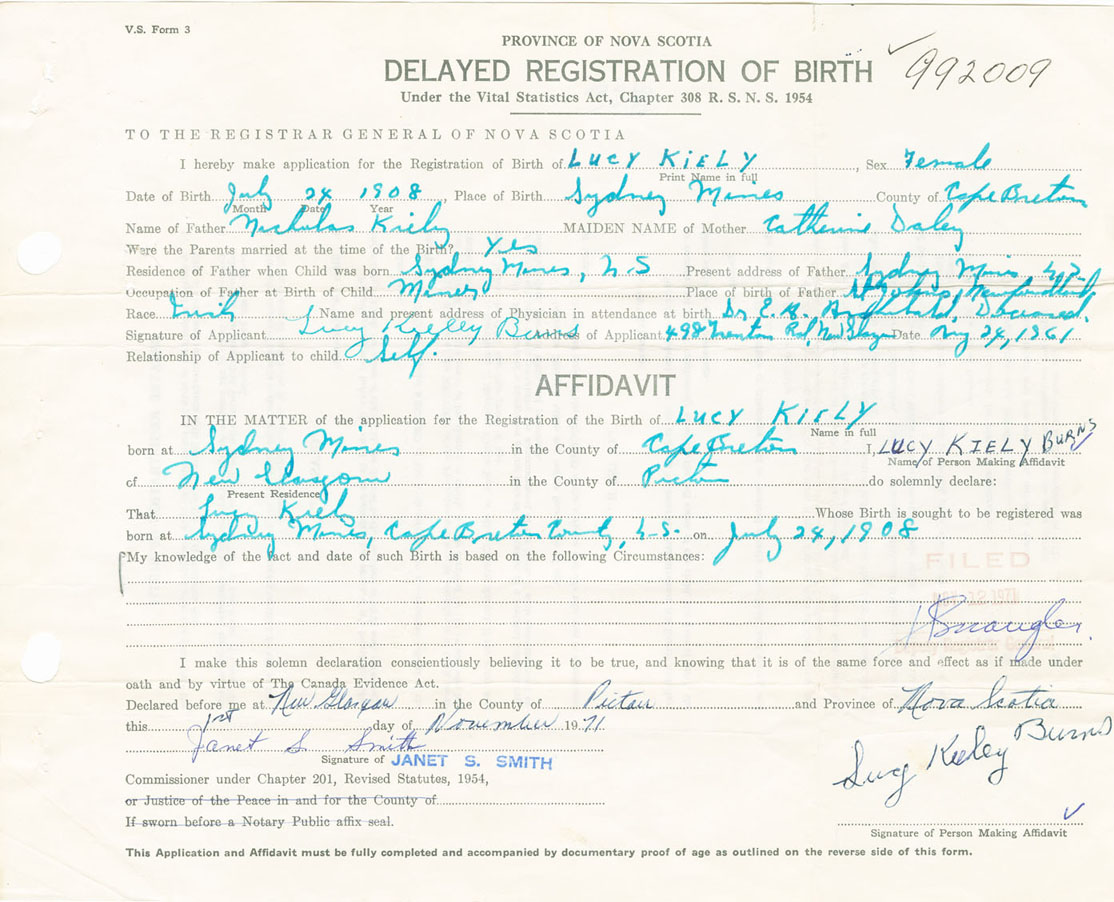 V.S. Form 3
PROVINCE OF NOVA SCOTIA
DELAYED REGISTRATION OF BIRTH 992009
Under the Vital Statistics Act, Chapter 308 R. S. N. S. 1954
TO THE REGISTRAR GENERAL OF NOVA SCOTIA
I hereby make application for the Registration of Birth of LUCY KIELY, Sex Female
Print Name in full
Date of Birth July 24 1908 Place of Birth Sydney Mines County of Cape Breton
Month Date Year
Name of Father Nicholas Kiely MAIDEN NAME of Mother Catherine Daley
Were the Parents married at the time of the Birth? Yes
Residence of Father when Child was born Sydney Mines, N.S Present address of Father Sydney Mines, N.S.
Occupation of Father at Birth of Child Miner Place of birth of Father St Johns, Newfoundland
Race Irish Name and present address of Physician in attendance at birth Dr. E. Archibald, Deceased
Signature of Applicant Lucy Keeley Burns Address of Applicant 498 Trenton Rd, New Date 24, 1961
Relationship of Applicant to child Self.
AFFIDAVIT
IN THE MATTER of the application for the Registration of the Birth of LUCY KIELY
Name in full
born at Sydney Mines in the County of Cape Breton I, LUCY KIELY BURNS
Name of Person Making Affidavit
of New Glasgow in the County of Pictou do solemnly declare:
Present Residence
That Lucy Kiely Whose Birth is sought to be registered was
born at Sydney Mines, Cape Breton County, N.S. on July 24, 1908
My knowledge of the fact and date of such Birth is based on the following Circumstances:
FILED
12 1971
Deputy Registrar General
I make this solemn declaration conscientiously believing it to be true, and knowing that it is of the same force and effect as if made under
oath and by virtue of The Canada Evidence Act.
Declared before me at New Glasgow in the County of Pictou and Province of Nova Scotia
this 1st day of November 1971
Janet S. Smith
Signature of JANET S. SMITH
Lucy Keeley Burns
Commissioner under Chapter 201, Revised Statutes, 1954,
or Justice of the Peace in and for the County of
If sworn before a Notary Public affix seal.
Signature of Person Making Affidavit
This Application and Affidavit must be fully completed and accompanied by documentary proof of age as outlined on the reverse side of this form.